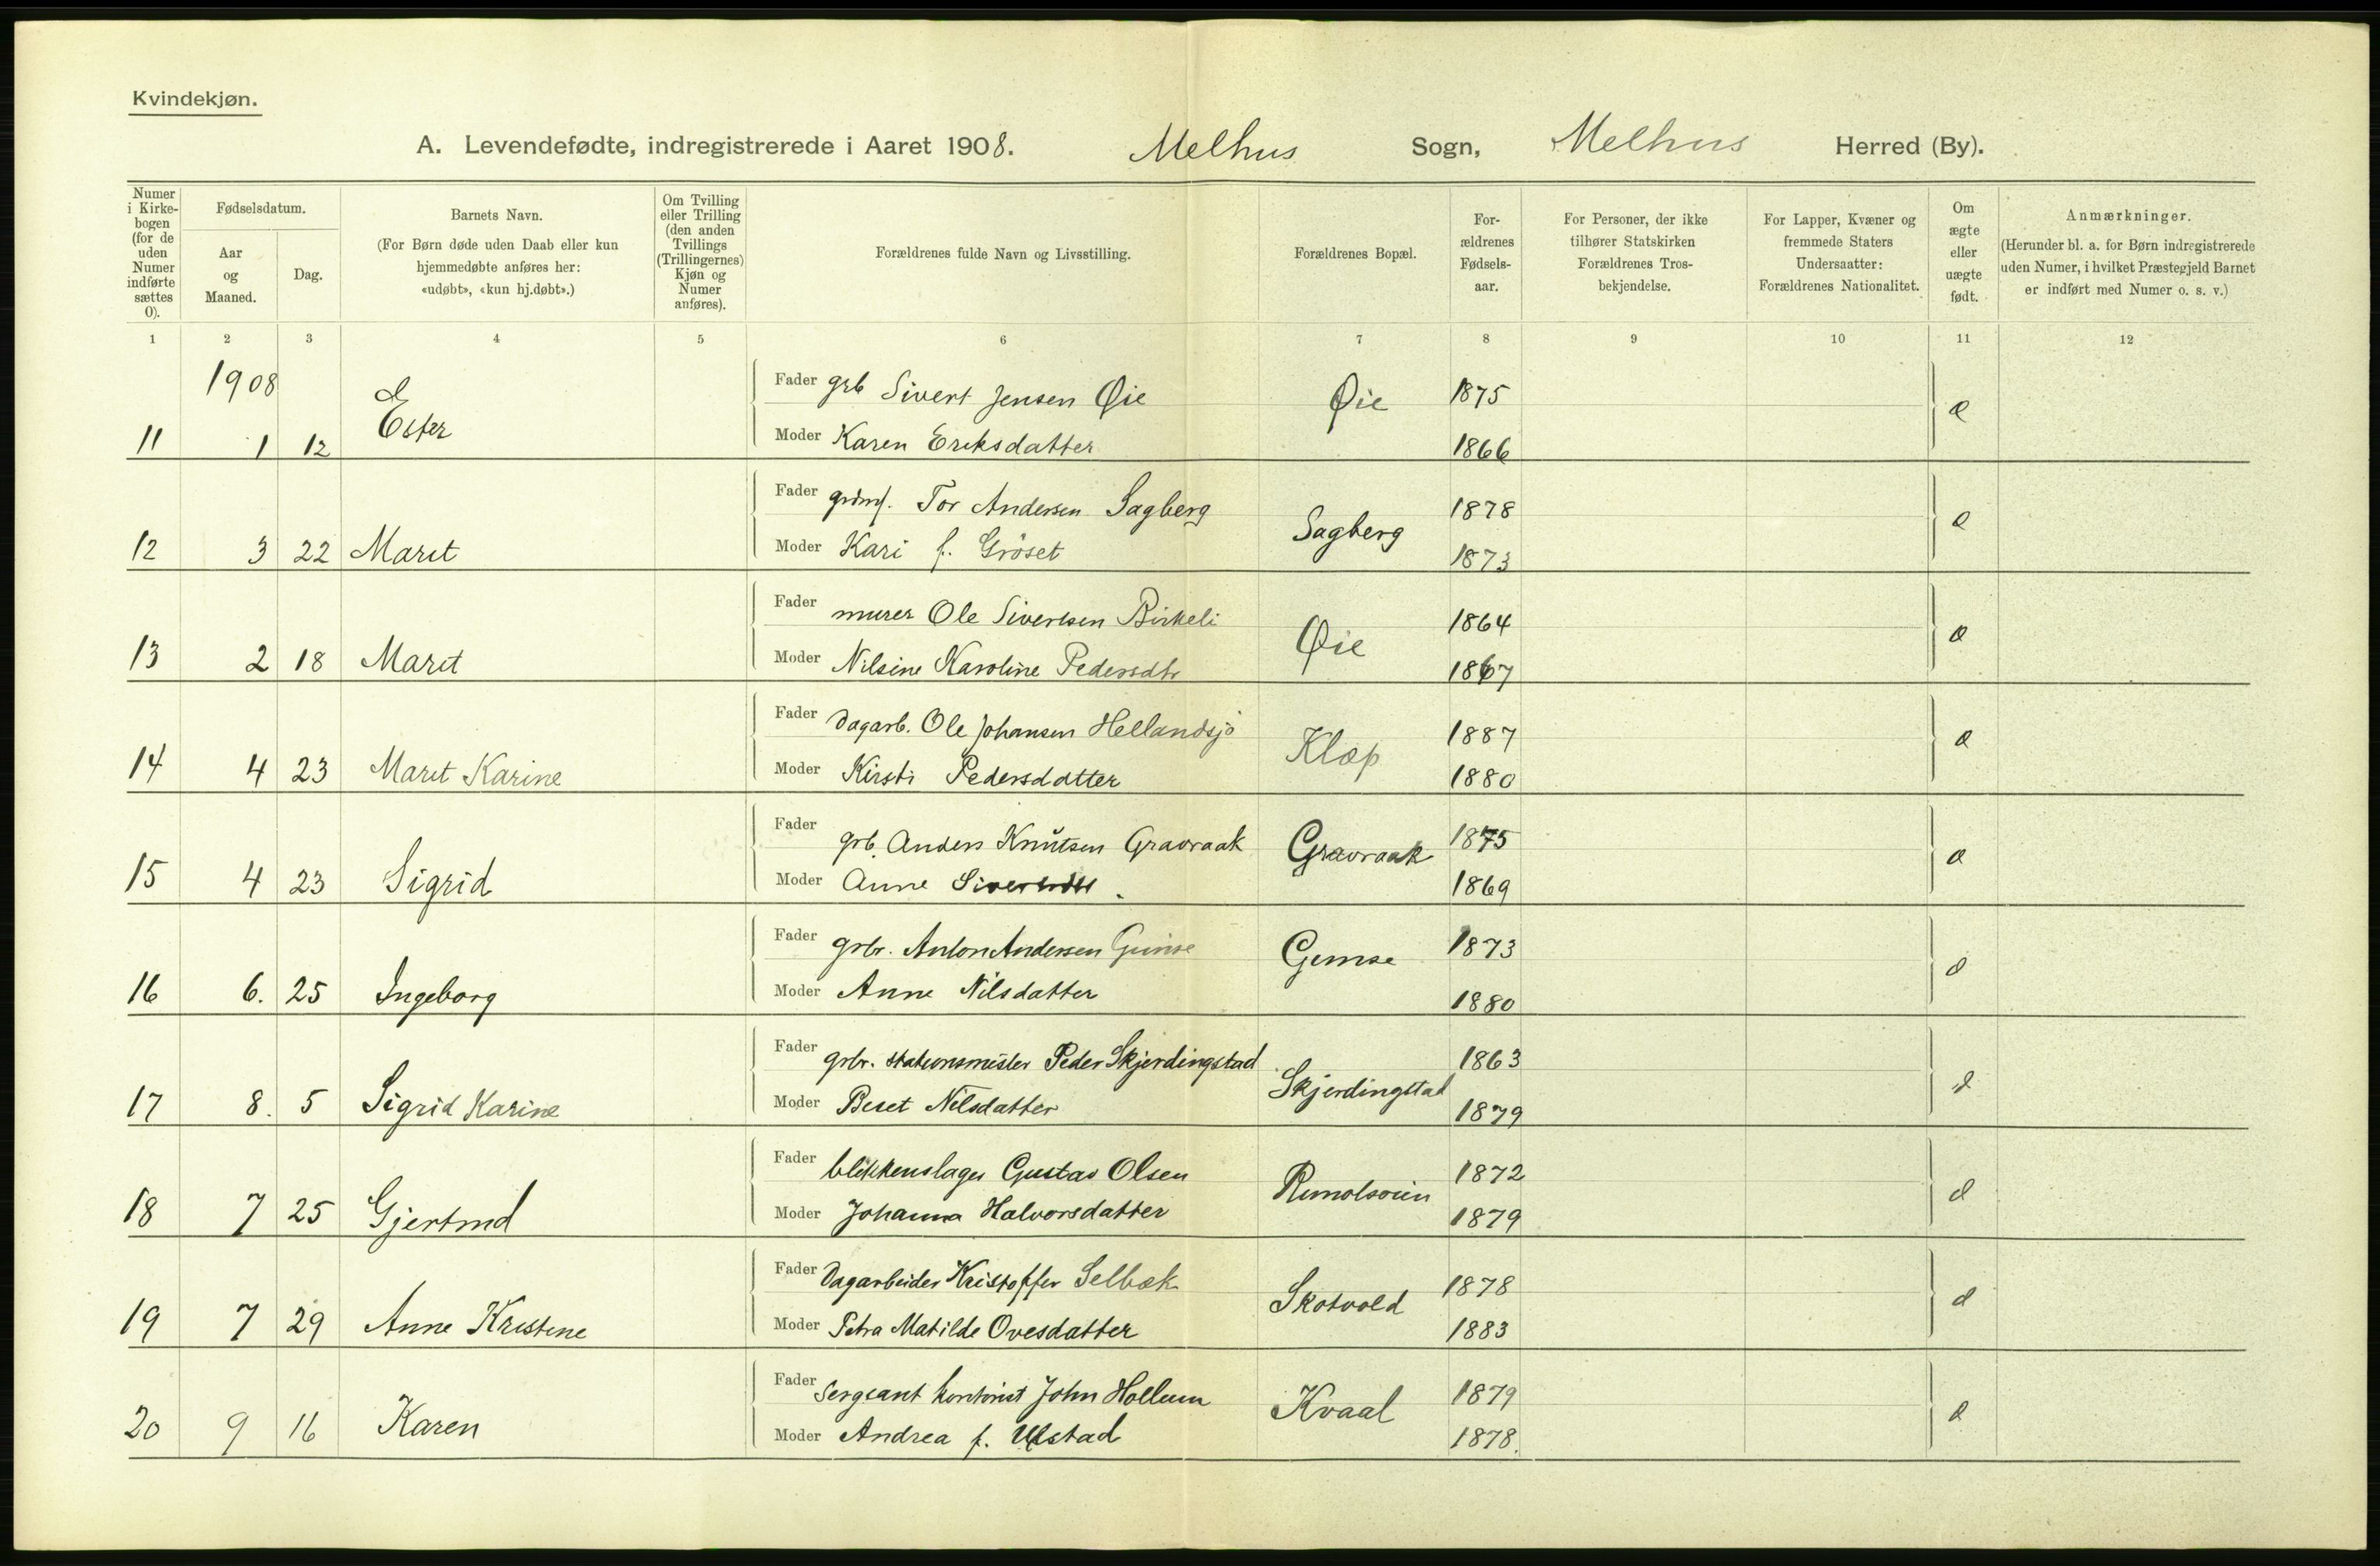 Kvindekjøn.
A. Levendefødte, indregistrerede i Aaret 1908. Melhus Sogn, Melhus Herred (By).
Numer i Kirkebogen (for de uden Numer indførte sættes 0).
Fødselsdatum.
Aar og Maaned.
Dag.
Barnets Navn.
(For Børn døde uden Daab eller kun hjemmedøbte anføres her: «udøbt», «kun hj.døbt».)
Om Tvilling eller Trilling (den anden Tvillings (Trillingernes) Kjøn og Numer anføres).
Forældrenes fulde Navn og Livsstilling.
Forældrenes Bopæl.
Forældrenes Fødselsaar.
For Personer, der ikke tilhører Statskirken Forældrenes Trosbekjendelse.
For Lapper, Kvæner og fremmede Staters Undersaatter: Forældrenes Nationalitet.
Om ægte eller uægte født.
Anmærkninger.
(Herunder bl. a. for Børn indregistrerede uden Numer, i hvilket Præstegjeld Barnet er indført med Numer o. s. v.)
1 2 3 4 5 6 7 8 9 10 11 12
1908
Fader grb Sivert Jensen Øie Øie 1875
11 1 12 Ester Moder Karen Eriksdatter 1866
Fader Tor Andersen Sagberg Sagberg 1878
12 3 22 Marit Moder Kari f. Gröset 1873
Fader murer Ole Sivertsen Birkeli Øie 1864
13 2 18 Marit Moder Nilsine Karoline Pedersdtr 1867
Fader Dagarb. Ole Johansen Hellandsjö Klæp 1887
14 4 23 Marit Karine Moder Kirsti Pedersdatter 1880
Fader grb. Anders Knutsen Gravraak Gravraak 1875
15 4 23 Sigrid Moder Anne 1869
Fader grbr. Anton Andersen Gimse Gimse 1873
16 6. 25 Ingeborg Moder Anne Nilsdatter 1880
Fader grbr. stationsmester Peder Skjerdingstad Skjerdingstad 1863
17 8. 5 Sigrid Karine Moder Beret Nilsdatter 1879
Fader blikkenslager Gustav Olsen Rimolsøien 1872
18 7 25 Gjertrud Moder Johanna Halvorsdatter 1879
Fader Dagarbeider Kristoffer Selbæk Skotvold 1878
19 7 29 Anne Kristine Moder Petra Matilde Ovesdatter 1883
Fader Sergeant kontorist John Hollum Kvaal 1879
20 9 16 Karen Moder Andrea f. Ulstad 1878.